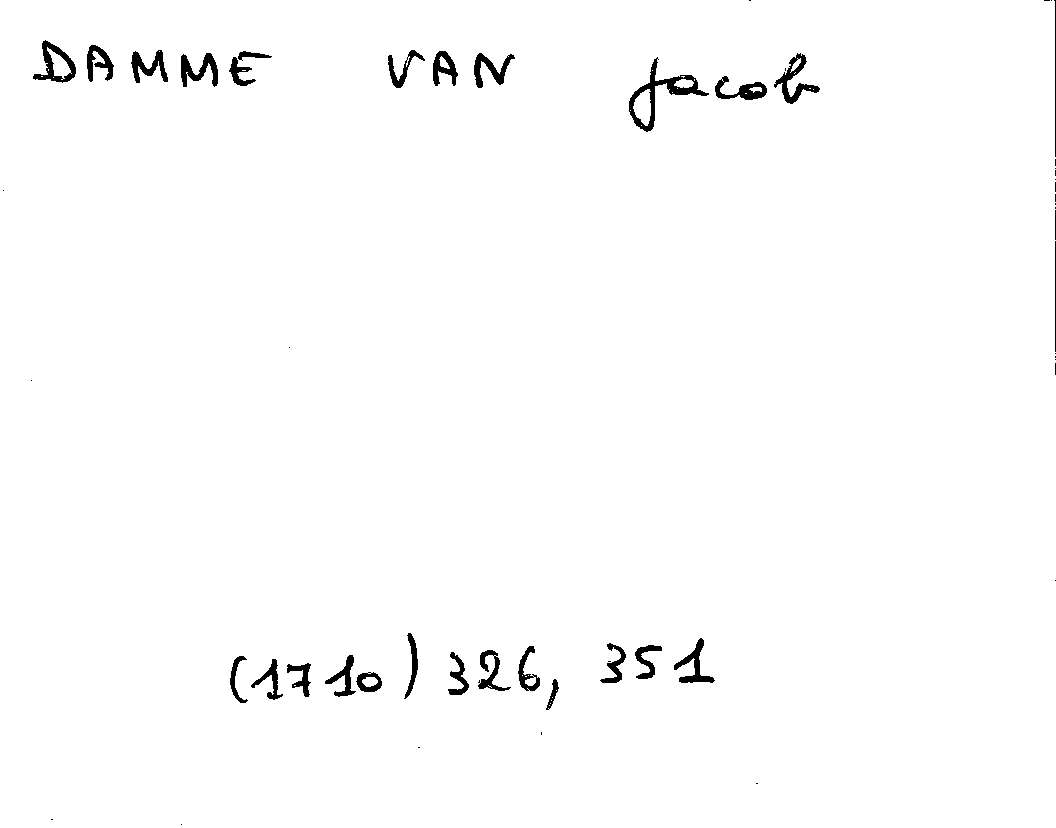 DAMME VAN Jacob
(1710) 326, 351